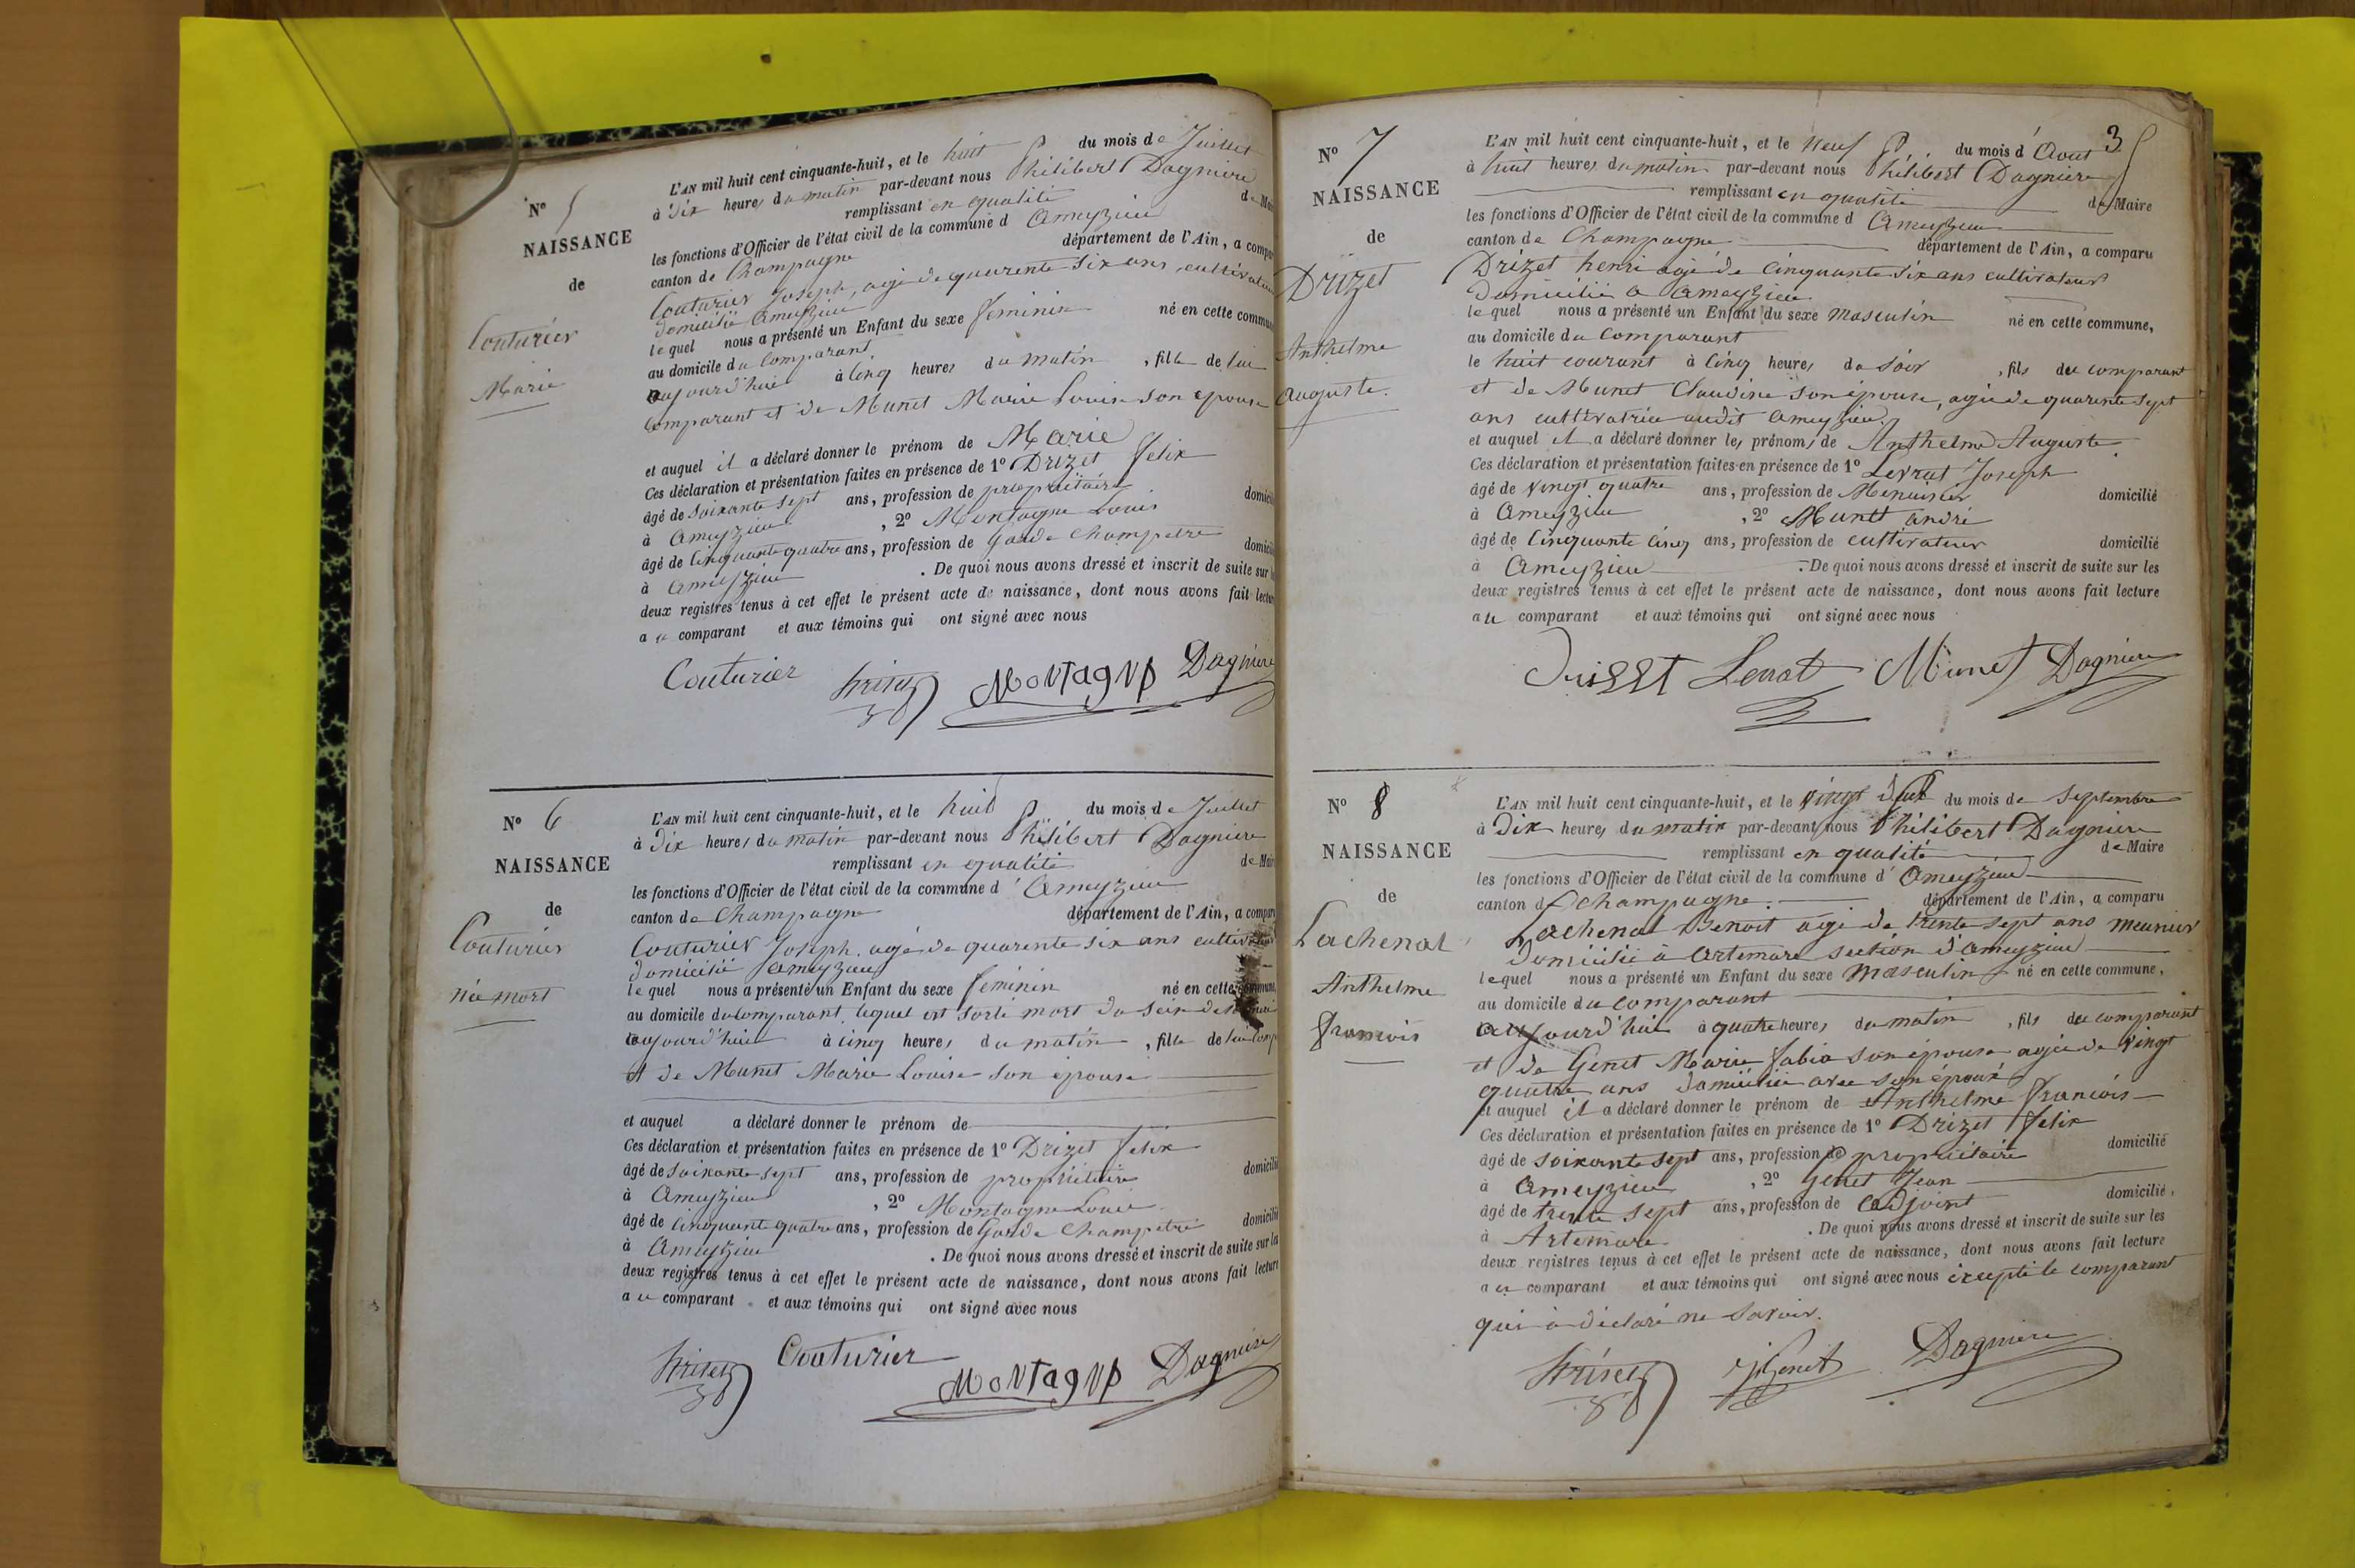 N° 5
NAISSANCE
de
Couturier
Marie
L'AN mil huit cent cinquante-huit, et le huit du mois de Juillet
à dix heures du matin par-devant nous Philibert Dagniere
remplissant en qualité de Mai
les fonctions d'Officier de l'état civil de la commune d Ameyzieu
canton de Champagne département de l'Ain, a compar
Couturier Joseph, agé de quarente six ans, cultivateur
domicilié Ameyzieu
lequel nous a présenté un Enfant du sexe feminin né en cette commun
au domicile du comparant,
aujourd'hui à cinq heures du matin, fille de lui
comparant et de Munet Marie Louise son epouse
et auquel il a déclaré donner le prénom de Marie
Ces déclaration et présentation faites en présence de 1° Drizet felix
âgé de soixante sept ans, profession de propriétaire domicili
à Ameyzieu, 2° Montagne Louis
âgé de cinquante quatre ans, profession de Garde Champetre domicili
à Ameyzieu. De quoi nous avons dressé et inscrit de suite sur l
deux registres tenus à cet effet le présent acte de naissance, dont nous avons fait lectur
au comparant et aux témoins qui ont signé avec nous
Couturier Montagne Dagniere
N° 6
NAISSANCE
de
Couturier
née mort
L'AN mil huit cent cinquante-huit, et le huit du mois de Juillet
à dix heures du matin par-devant nous Philibert Dagniere
remplissant en qualité de Mai
les fonctions d'Officier de l'état civil de la commune d'Ameyzieu
canton de Champagne département de l'Ain, a compar
Couturier Joseph. agé de quarente six ans cultivateur
domicilié Ameyzieu
lequel nous a présenté un Enfant du sexe feminin né en cette commune,
au domicile du comparant, lequel est sorti mort du sein de
aujourd'hui à cinq heures du matin, fille de lui comp
et de Munet Marie Louise son épouse
et auquel a déclaré donner le prénom de
Ces déclaration et présentation faites en présence de 1° Drizet felix
âgé de soixante sept ans, profession de propriétaire domicilié
à Ameyzieu, 2° Montagne Louis
âgé de cinquante quatre ans, profession de Garde Champetre domicilié
à Ameyzieu. De quoi nous avons dressé et inscrit de suite sur les
deux registres tenus à cet effet le présent acte de naissance, dont nous avons fait lecture
au comparant et aux témoins qui ont signé avec nous
Couturier
Montagne Dagniere
3
N° 7
NAISSANCE
de
Drizet
Anthelme
Auguste.
L'AN mil huit cent cinquante-huit, et le Neuf du mois d'Aout
à huit heures du matin par-devant nous Philibert Dagniere
remplissant en qualité de Maire
les fonctions d'Officier de l'état civil de la commune d Ameyzieu
canton de Champagne département de l'Ain, a comparu
Drizet henri agé de cinquante six ans cultivateur
domicilié a Ameyzieu
lequel nous a présenté un Enfant du sexe masculin né en cette commune,
au domicile du comparant
le huit courant à cinq heures du soir, fils du comparant
et de Munet Claudine son épouse, agée de quarente sept
ans cultivatrice audit Ameyzieu.
et auquel il a déclaré donner les prénoms de Anthelme Auguste.
Ces déclaration et présentation faites en présence de 1° Levrat Joseph
âgé de vingt quatre ans, profession de Menuisier domicilié
à Ameyzieu, 2° Munet andré
âgé de cinquante cinq ans, profession de cultivateur domicilié
à Ameyzieu. De quoi nous avons dressé et inscrit de suite sur les
deux registres tenus à cet effet le présent acte de naissance, dont nous avons fait lecture
au comparant et aux témoins qui ont signé avec nous
Munet Dagniere
N° 8
NAISSANCE
de
Lachenal
Anthelme
francois
L'AN mil huit cent cinquante-huit, et le vingt du mois de Septembre
à dix heures du matin par-devant nous Philibert Dagniere
remplissant en qualité de Maire
les fonctions d'Officier de l'état civil de la commune d'Ameyzieu
canton d champagne. département de l'Ain, a comparu
Lachenal Benoit agé de trente sept ans meunier
domicilié à Artemare section d'Ameyzieu
lequel nous a présenté un Enfant du sexe masculin né en cette commune,
au domicile du comparant
aujourd'hui à quatre heures du matin, fils du comparant
et de Genet Marie fabia son épouse agée de vingt
quatre ans domiciliée avec son époux
et auquel il a déclaré donner le prénom de Anthelme francois
Ces déclaration et présentation faites en présence de 1° Drizet felix
âgé de soixante sept ans, profession de propriétaire domicilié
à Ameyzieu, 2° Genet Jean
âgé de trente sept ans, profession de adjoint domicilié,
à Artemare. De quoi nous avons dressé et inscrit de suite sur les
deux registres tenus à cet effet le présent acte de naissance, dont nous avons fait lecture
au comparant et aux témoins qui ont signé avec nous excepté le comparant
qui à déclaré ne savoir.
Genet Dagniere